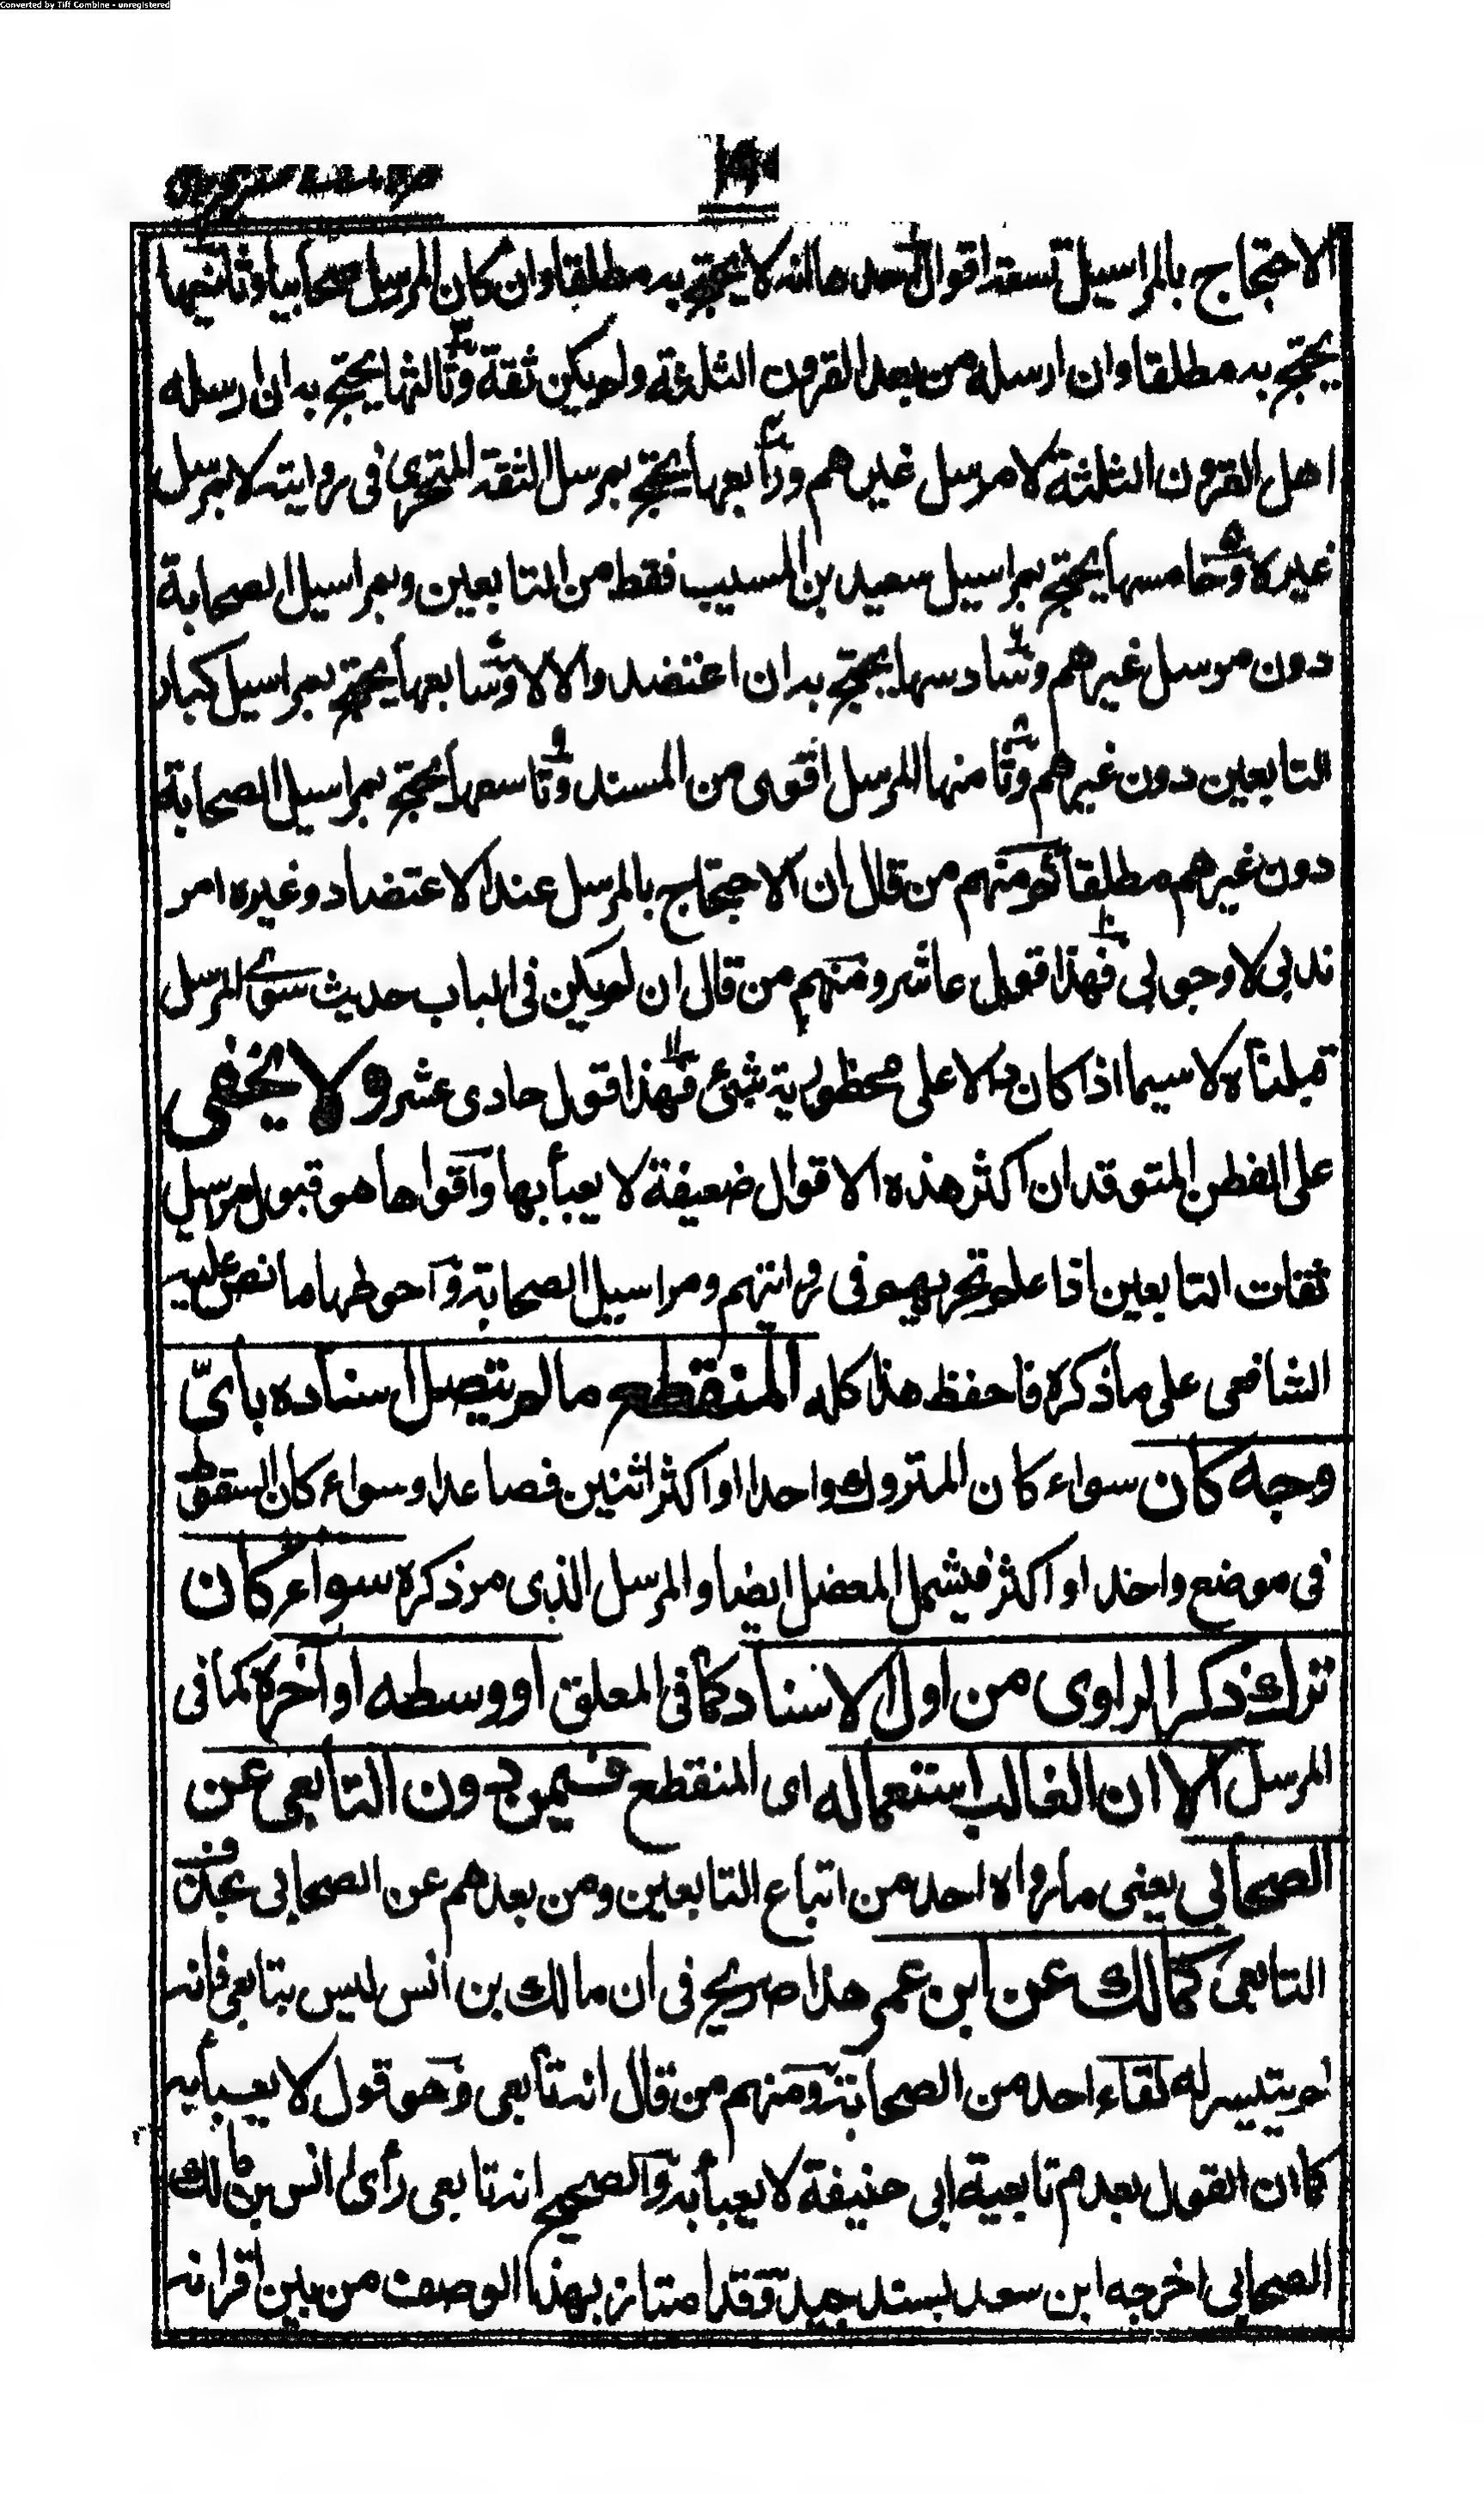 Converted by Tiff Combine - unregistered
الاحتجاج بالمراسيل تسعة اقوال احدها انه لا يحتج به مطلقا وان كان المرسل صحابيا وثانيها
يحتج به مطلقا وان ارسله من بعد القرون الثلثة ولم يكن ثقة وثالثها يحتج به ان ارسله
اهل القرون الثلثة لا مرسل غيرهم ورابعها يحتج بمرسل الثقة المتحرى فى روايته لا بمرسل
غيره وخامسها يحتج بمراسيل سعيد بن المسيب فقط من التابعين وبمراسيل الصحابة
دون مرسل غيرهم وسادسها يحتج به ان اعتضد والا لا وسابعها يحتج بمراسيل كبار
التابعين دون غيرهم وثامنها المرسل اقوى من المسند وتاسعها يحتج بمراسيل الصحابة
دون غيرهم مطلقا ثم منهم من قال ان الاحتجاج بالمرسل عند الاعتضاد وغيره امر
ندبى لا وجوبى فهذا قول عاشر ومنهم من قال ان لم يكن فى الباب حديث سوى المرسل
قبلناه لا سيما اذا كان دالا على محظورية شئ فهذا قول حادى عشر ولا يخفى
على الفطن المتوقد ان اكثر هذه الاقوال ضعيفة لا يعبأ بها واقواها هو قبول مرسيل
ثقات التابعين اذا علم تحريهم فى روايتهم ومراسيل الصحابة واحوطها ما نص عليه
الشافعى على ما ذكره فاحفظ هذا كله المنقطع ما لم يتصل اسناده باىّ
وجه كان سواء كان المتروك واحدا او اكثر اثنين فصاعدا وسواء كان السقوط
فى موضع واحد او اكثر فيشمل المعضل ايضا والمرسل الذى مر ذكره سواء كان
ترك ذكر الراوى من اول الاسناد كما فى المعلق او وسطه او آخره كما فى
المرسل الا ان الغالب استعماله اى المنقطع فيمن دون التابعى عن
الصحابى يعنى ما رواه احد من اتباع التابعين ومن بعدهم عن الصحابى بحذف
التابعى كمالك عن ابن عمر هذا صريح فى ان مالك بن انس ليس بتابعى فانه
لم يتيسر له لقاء احد من الصحابة ومنهم من قال انه تابعى وهو قول لا يعبأ به
كما ان القول بعدم تابعية ابى حنيفة لا يعبأ به والصحيح انه تابعى رأى انس بن مالك
الصحابى اخرجه ابن سعد بسند جيد وقد امتاز بهذا الوصف من بين اقرانه